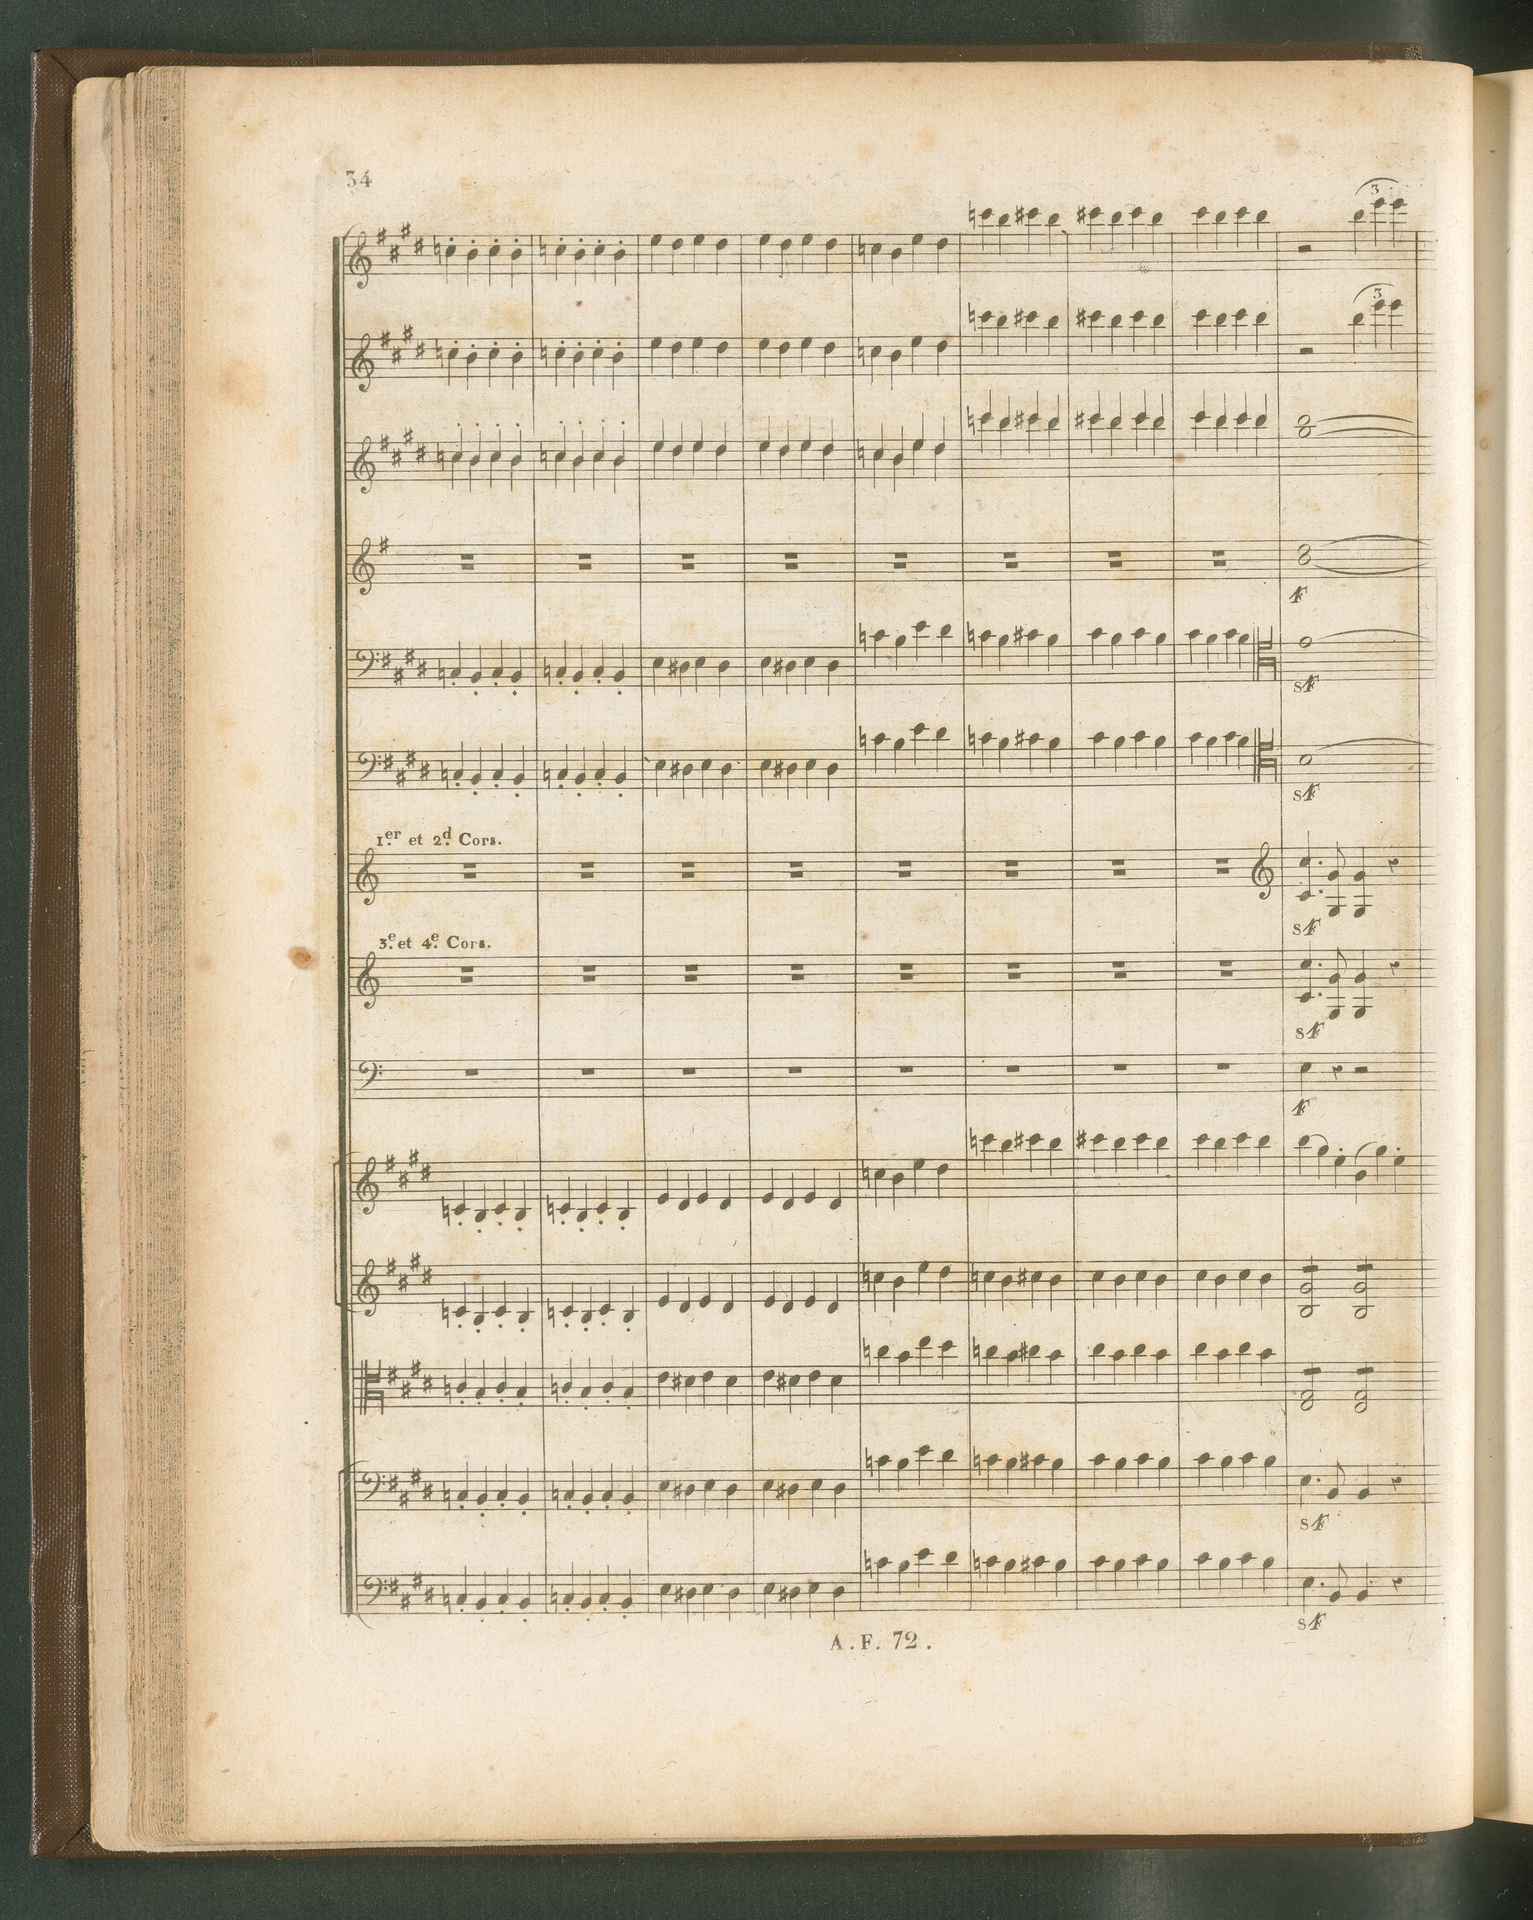 34
3
3
F
sF
sF
1.er et 2.d Cors.
sF
3.e et 4.e Cors.
sF
F
sF
sF
A.F. 72.